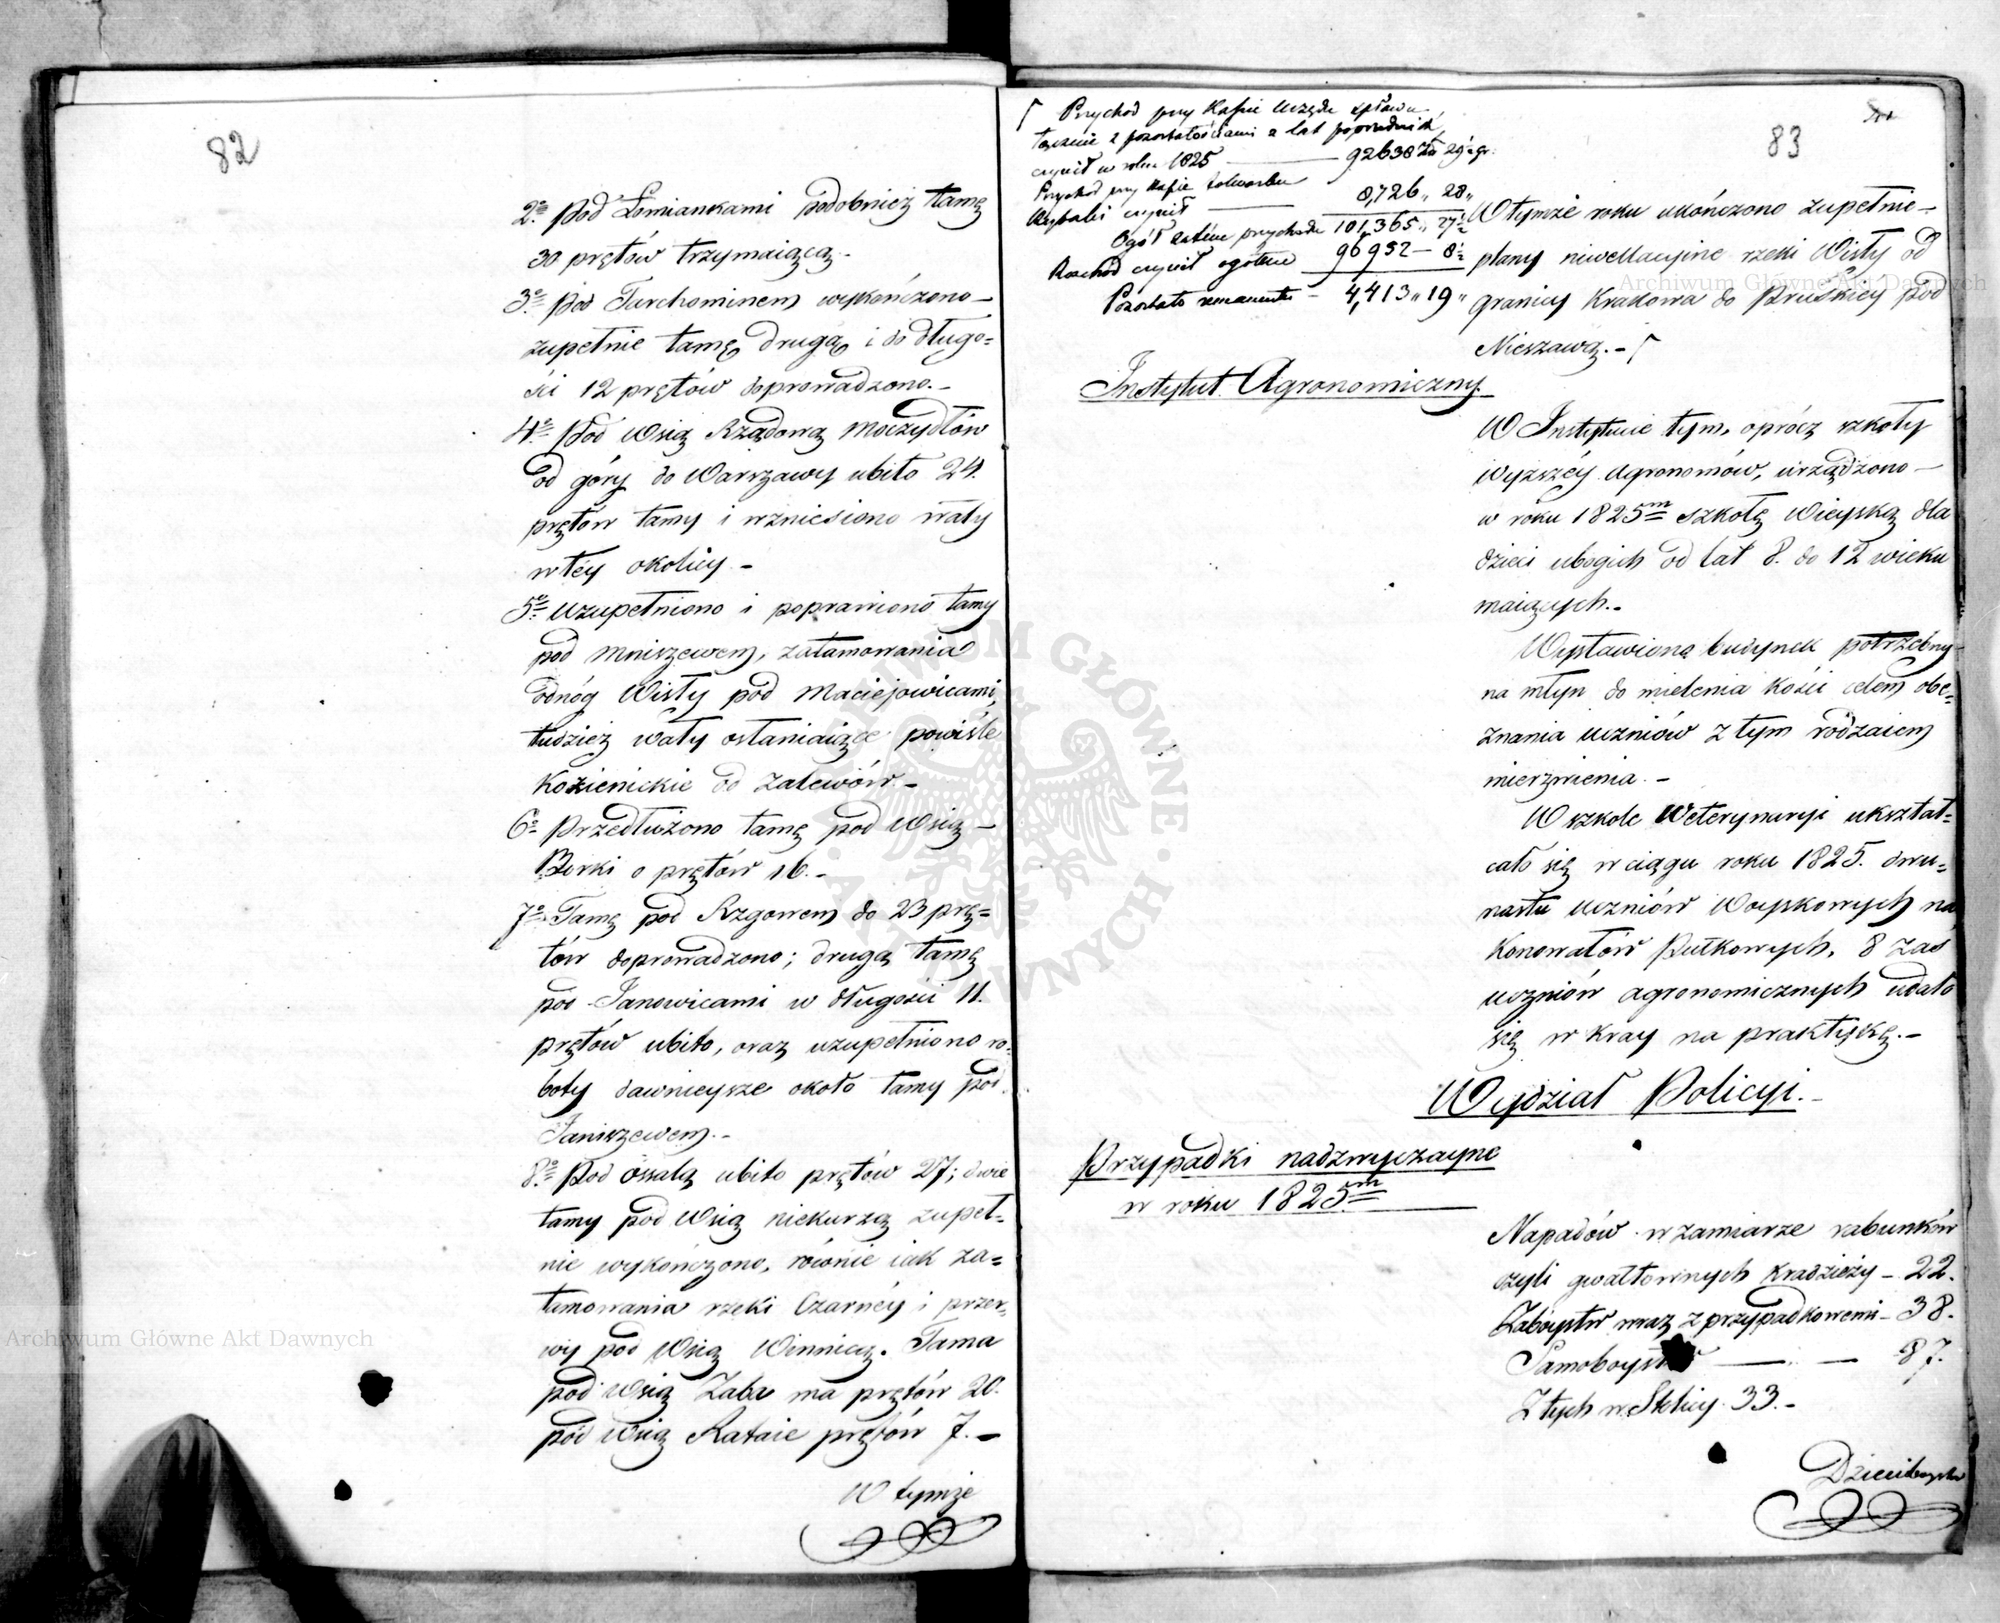 82
2o Pod Łomiankami podobnież tamę
30 prętów trzymaiącą.
3o Pod Tarchominem wykończono
zupełnie tamę drugą i do długo=
ści 12 prętów doprowadzono.
4o Pod Wsią Rządową Moczydłów
od góry do Warszawy ubito 24.
prętów tamy i wzniesiono wały
w téy okolicy
5o Uzupełniono i poprawiono tamy
pod Mniszewem, zatamowania
odnóg Wisły pod Maciejowicami,
tudzież wały osłaniaiące powiśle
Kozienickie od zalewów.
6o Przedłużono tamę pod Wsią
Borki o prętów 16.
7o Tamę pod Rzgowem do 23 prę=
tów doprowadzono; drugą tamę
pod Janowicami w długości 11.
prętów ubito, oraz uzupełniono ro=
boty dawnieysze około tamy pod
Janiszewem.
8o Pod Ossalą ubito prętów 27; dwie
tamy pod Wsią Niekurzą zupeł=
nie wykończono, równie iak za=
tamowania rzeki Czarnéy i przer=
wy pod Wsią Winnicą. Tama
pod Wsią Zaba ma prętów 20.
pod Wsią Rataie prętów 7.
W tymże
83
Przychód przy Kassie Urzędu spławu
łącznie z pozostałościami z lat poprzednich
czynił w roku 1825 92638 Złt 29 gr.
Przychód przy Kassie folwarku
czynił 8,726 „ 28 „
Ogół zatém przychodu 101,365 „ 27½
Rozchód czynił ogółem 96952 — 8½
Pozostało remanentu — 4,413 „ 19 „
W tymże roku ukończono zupełnie
plany niwellacyine rzeki Wisły od
granicy Krakowa do Pruskiey pod
Nieszawą.
Instytut Agronomiczny
W Instytucie tym, oprócz szkoły
wyższéy Agronomów, urządzono
w roku 1825m szkołę wieyską dla
dzieci ubogich od lat 8. do 12 wieku
maiących.
Wystawiono budynek potrzebny
na młyn do mielenia kości celem obe=
znania uczniów z tym rodzaiem
mierzwienia.
W szkole Weterynaryi ukształ=
cało się w ciągu roku 1825. dwu=
nastu uczniów Woyskowych na
Konowałów Pułkowych, 8 zaś
uczniów agronomicznych udało
się w kray na praktykę.
Wydział Policyi.
Przypadki nadzwyczayne
w roku 1825m
Napadów w zamiarze rabunków
czyli gwałtownych kradzieży — 22.
Zaboystw wraz z przypadkowemi — 38.
Samoboystw — — 87.
Z tych w Stolicy 33.
Dzieciboystw
Archiwum Główne Akt Dawnych
Archiwum Główne Akt Dawnych
ARCHIWUM GŁÓWNE AKT DAWNYCH